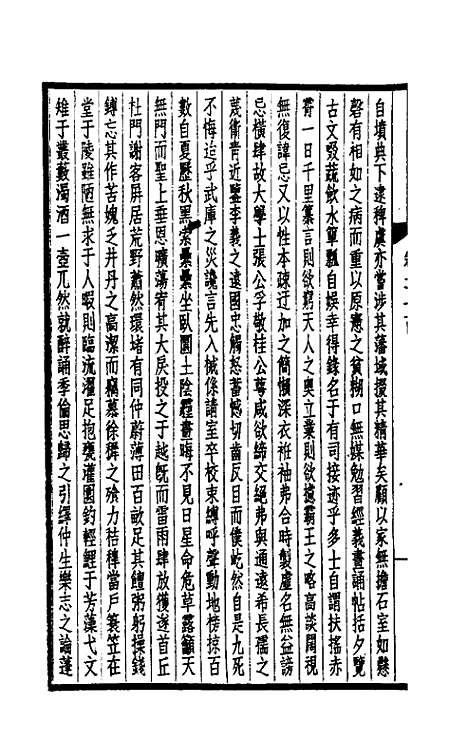 自墳典下逮稗虞亦當涉其藩域掇其精華矣顧以家無擔石室如懸
磬有相如之病而重以原憲之貧糊口無媒勉習經義晝誦帖括夕覽
古文啜蔬飲水簞瓢自娛幸得錄名于有司接迹乎多士自謂扶搖赤
霄一日千里纂言則欲窮天人之奥立業則欲攄霸王之略高談闊視
無復諱忌又以性本疎迂加之簡懶深衣袵袖弗合時製虛名無益謗
忌橫肆故大學士張公孚敬桂公萼咸欲締交絕弗與通遠希長孺之
蔑衞青近鑒李義之遠國忠觸怒蓄憾切齒反目而僕屹然自是九死
不悔迨乎武庫之災讒言先入械係請室卒校束縛呼聲動地搒掠百
數自夏歷秋黑索纍纍坐臥圜土陰霾晝晦不見日星命危草露籲天
無門而聖上垂恩曠蕩宥其大戾投之于越旣而雷雨肆放獲遂首丘
杜門謝客屏居荒野蕭然環堵有同仲蔚薄田百畝足其饘粥躬操錢
鎛忘其作苦媿乏井丹之高潔而竊慕徐穉之飱力桔槹當戶蓑笠在
堂于陵雖陋無求于人暇則臨流濯足抱甕灌園釣輕鯉于芳藻弋文
雉于叢藪濁酒一壺兀然就醉誦季倫思歸之引繹仲生樂志之論蓬